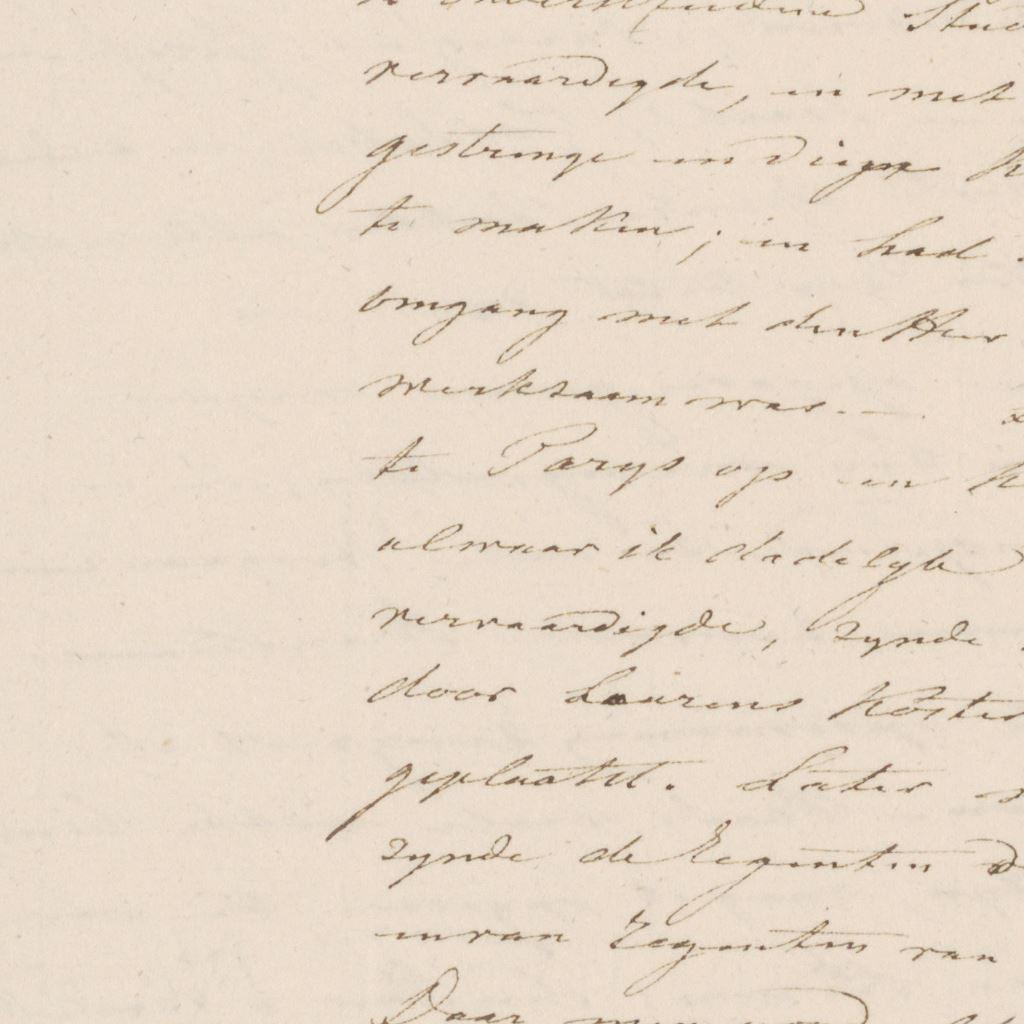 vervaardigde, en met
gestrenge en dieger
te maken; en had
omgang met den Heer
werkzaam was. —
te Parys op en
alwaar ik dadelyk
vervaardigde, zynde
door Laurens Koster
geplaatst. Later
zynde de Regenten
en van Regenten van
Daar men